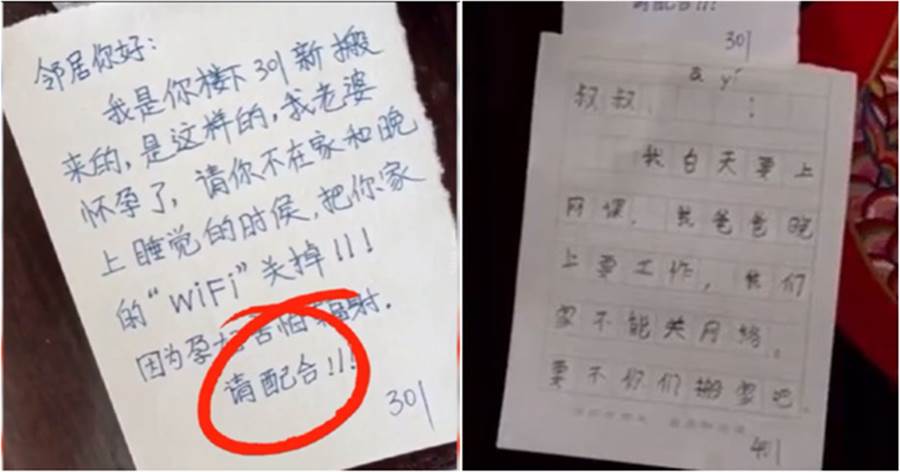 邻居你好：
我是你楼下301新搬
来的，是这样的，我老婆
怀孕了，请你不在家和晚
上睡觉的时候，把你家
的“WiFi”关掉!!!
因为孕妇害怕辐射.
请配合!!!
301
请配合!!!
301
a yí
叔叔、 :
我白天要上
网课，我爸爸晚
上要工作，我们
家不能关网络。
要不你们搬家吧
401